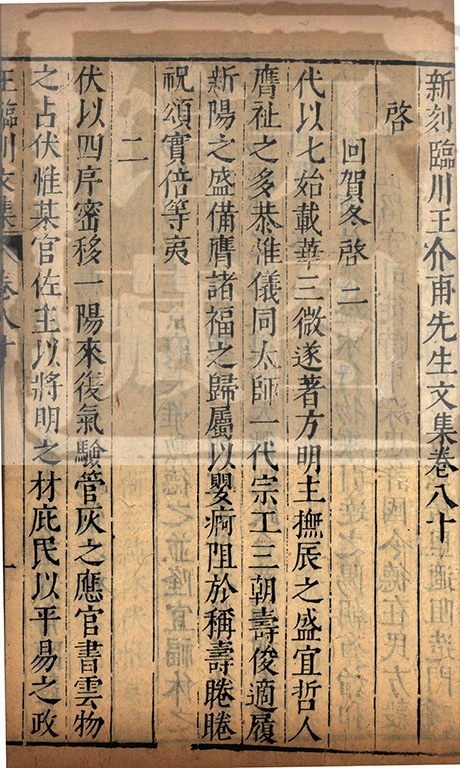 新刻臨川王介甫先生文集卷八十
啓
回賀冬啓二
代以七始載華三微遂著方明主撫辰之盛宜哲人
膺祉之多恭惟儀同太師一代宗工三朝壽俊適履
新陽之盛備膺諸福之歸屬以嬰痾阻於稱壽睠睠
祝頌實倍等夷
二
伏以四序密移一陽來復氣驗管灰之應官書雲物
之占伏惟某官佐主以將明之材庇民以平易之政
王臨川文集 卷八十 一